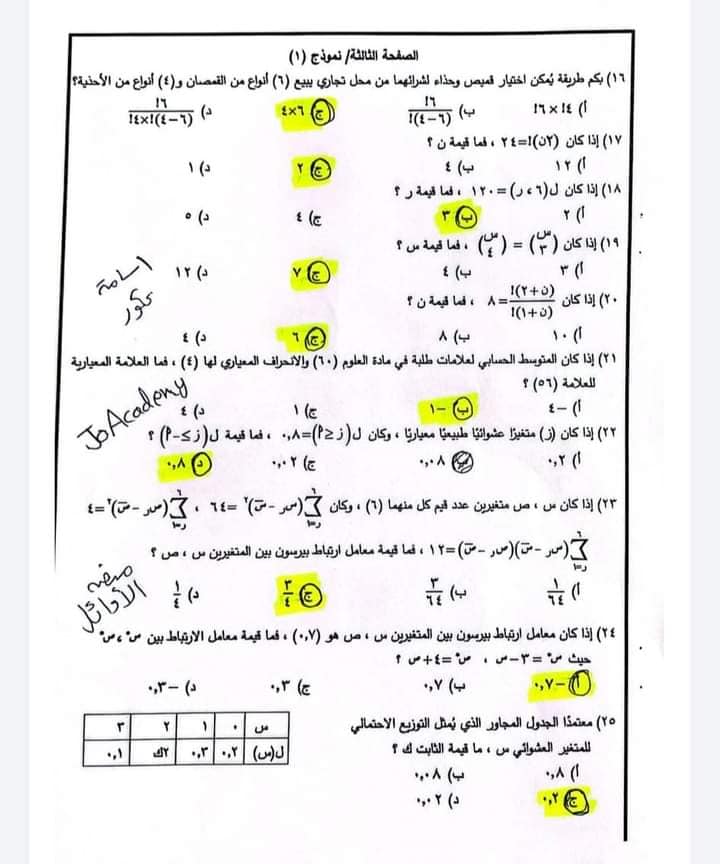 الصفحة الثالثة/ نموذج (١)
١٦) بكم طريقة يُمكن اختيار قميص وحذاء لشرائهما من محل تجاري يبيع (٦) أنواع من القمصان و(٤) أنواع من الأحذية؟
أ) ٤! × ٦! ب) ٦! / (٦-٤)! ج) ٦×٤ د) ٦! / (٦-٤)!×٤!
١٧) إذا كان (٢ن)!=٢٤ ، فما قيمة ن ؟
أ) ١٢ ب) ٤ ج) ٢ د) ١
١٨) إذا كان ل(٦،ر)=١٢٠ ، فما قيمة ر ؟
أ) ٢ ب) ٣ ج) ٤ د) ٥
١٩) إذا كان (س ٣) = (س ٤) ، فما قيمة س ؟
أ) ٣ ب) ٤ ج) ٧ د) ١٢
أسامة
عكور
٢٠) إذا كان (ن+٢)! / (ن+١)! = ٨ ، فما قيمة ن ؟
أ) ١٠ ب) ٨ ج) ٦ د) ٤
٢١) إذا كان المتوسط الحسابي لعلامات طلبة في مادة العلوم (٦٠) والانحراف المعياري لها (٤) ، فما العلامة المعيارية
للعلامة (٥٦) ؟
أ) -٤ ب) -١ ج) ١ د) ٤
JoAcademy
٢٢) إذا كان (ز) متغيرًا عشوائيًا طبيعيًا معياريًا ، وكان ل(ز≤أ)=٠,٨ ، فما قيمة ل(ز≥-أ) ؟
أ) ٠,٢ ٠,٠٨ ج) ٠,٠٢ د) ٠,٨
٢٣) إذا كان س ، ص متغيرين عدد قيم كل منهما (٦) ، وكان ٦∑ر=١ (سر -س̄)٢ =٦٤ ، ٦∑ر=١ (صر -ص̄)٢=٤
٦∑ر=١ (سر -س̄)(صر -ص̄)=١٢ ، فما قيمة معامل ارتباط بيرسون بين المتغيرين س ، ص ؟
أ) ١/٦٤ ب) ٣/٦٤ ج) ٣/٤ د) ١/٤
منصة
الأوائل
٢٤) إذا كان معامل ارتباط بيرسون بين المتغيرين س ، ص هو (٠,٧) ، فما قيمة معامل الارتباط بين س* ، ص*
حيث س* =٣-س ، ص* =٤+ص ؟
أ) -٠,٧ ب) ٠,٧ ج) ٠,٣ د) -٠,٣
٢٥) معتمدًا الجدول المجاور الذي يُمثل التوزيع الاحتمالي
للمتغير العشوائي س ، ما قيمة الثابت ك ؟
س ٠ ١ ٢ ٣
ل(س) ٠,٢ ٠,٣ ٢ك ٠,١
أ) ٠,٨ ب) ٠,٠٨
ج) ٠,٢ د) ٠,٠٢